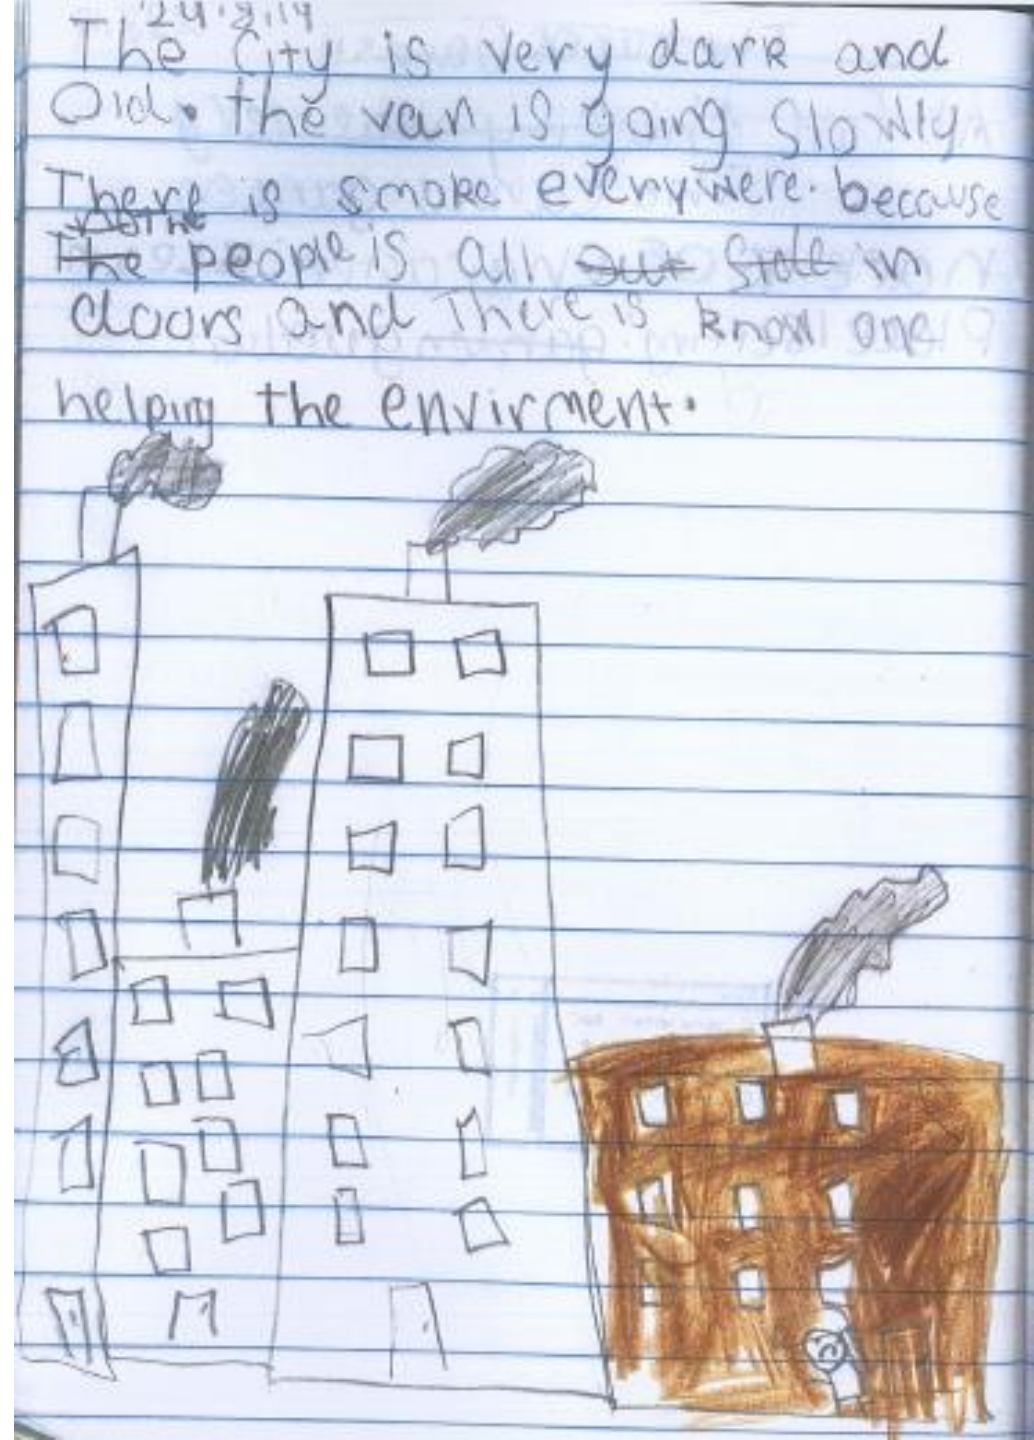 24.3.14
The City is very dark and
Old. the van is going Slowly
There is smoke everywere. because
The people is all out in
doors and There is know one
helping the envirment.